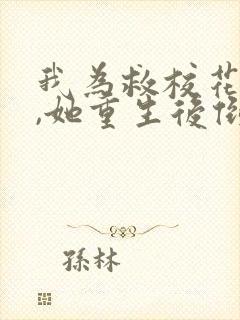 我為救校花
,她重生後倒
孫林